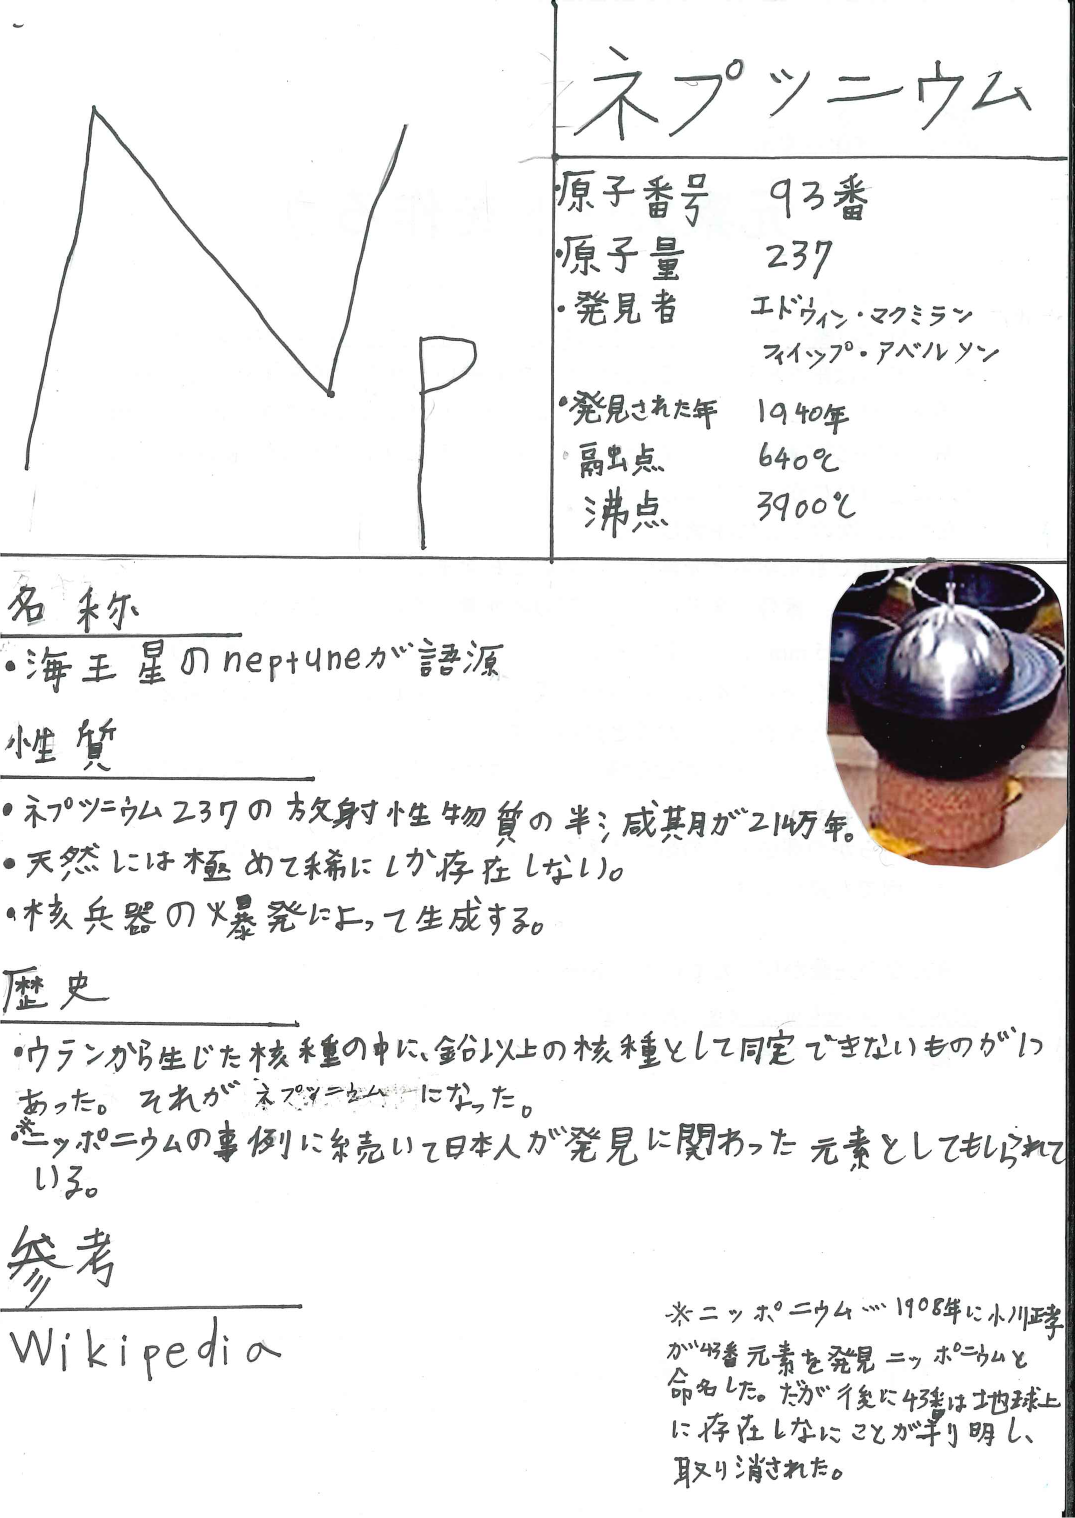 Np
ネプツニウム
・原子番号 93番
・原子量 237
・発見者 エドウィン・マクミラン
フィイップ・アベルソン
・発見された年 1940年
・融点 640℃
沸点 3900℃
名称
・海王星のneptuneが語源
性質
・ネプツニウム237の放射性物質の半減期が214万年。
・天然には極めて稀にしか存在しない。
・核兵器の爆発によって生成する。
歴史
・ウランから生じた核種の中に、鉛以上の核種として同定できないものが1つ
あった。それがネプツニウムになった。
・※ニッポニウムの事例に続いて日本人が発見に関わった元素としてもしられて
いる。
参考
Wikipedia
※ニッポニウム…1908年に小川正孝
が43番元素を発見ニッポニウムと
命名した。だが後に43番は地球上
に存在しなにことが判明し、
取り消された。